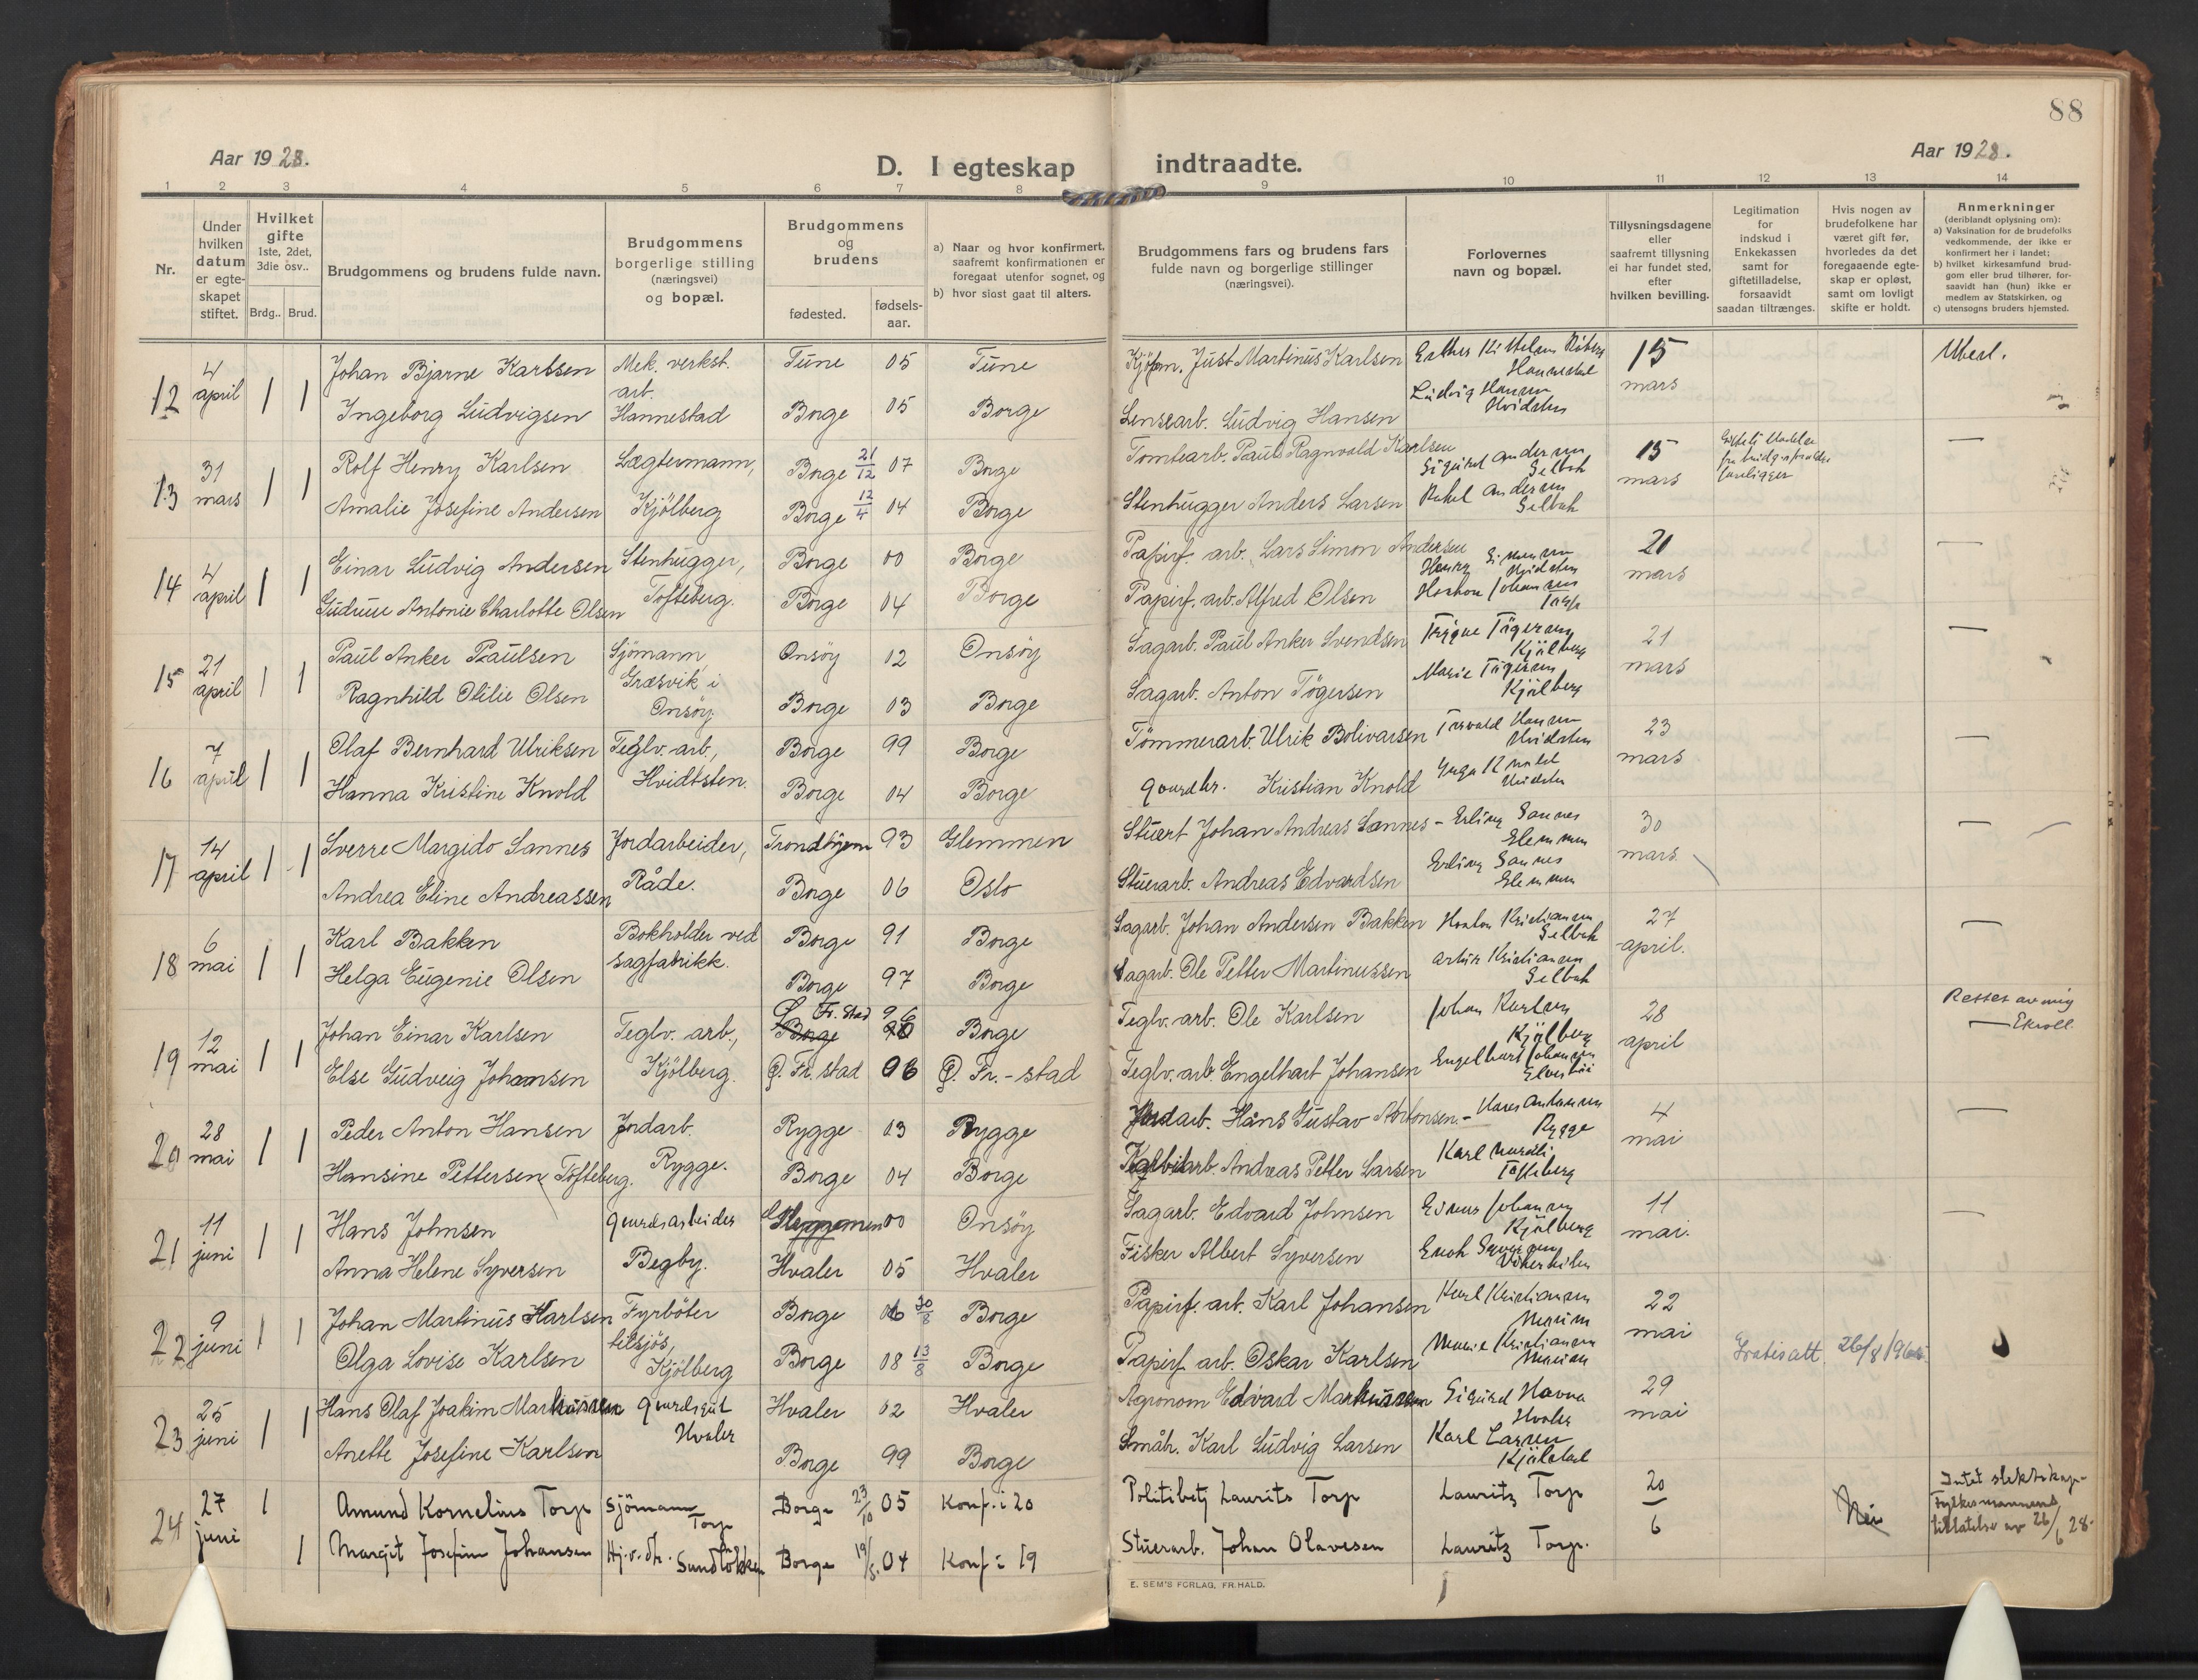 88
Aar 1928.
D. I egteskap indtraadte.
Aar 1928.
1 2 3 4 5 6 7 8 9 10 11 12 13 14
Nr.
Under hvilken datum er egteskapet stiftet.
Hvilket gifte 1ste, 2det, 3die osv..
Brdg.. Brud.
Brudgommens og brudens fulde navn.
Brudgommens borgerlige stilling (næringsvei) og bopæl.
Brudgommens og brudens
fødested.
fødsels-aar.
a) Naar og hvor konfirmert, saafremt konfirmationen er foregaat utenfor sognet, og
b) hvor sidst gaat til alters.
Brudgommens fars og brudens fars fulde navn og borgerlige stillinger (næringsvei).
Forlovernes navn og bopæl.
Tillysningsdagene eller saafremt tillysning ei har fundet sted, efter hvilken bevilling.
Legitimation for indskud i Enkekassen samt for giftetilladelse, forsaavidt saadan tiltrænges.
Hvis nogen av brudefolkene har været gift før, hvorledes da det foregaaende egteskap er opløst, samt om lovligt skifte er holdt.
Anmerkninger (deriblandt oplysning om):
a) Vaksination for de brudefolks vedkommende, der ikke er konfirmert her i landet;
b) hvilket kirkesamfund brudgom eller brud tilhører, forsaavidt han (hun) ikke er medlem av Statskirken, og
c) utensogns bruders hjemsted.
12 4 april 1 1 Johan Bjarne Karlsen Mek. verkst. arb. Hannestad Tune 05 Tune Just Martinus Karlsen 15 mars
Ingeborg Ludvigsen Borge 05 Borge Lensearb. Ludvig Hansen Ludvig Hansen Hvidsten
13 31 mars 1 1 Rolf Henry Karlsen Lægtermann, Kjölberg Borge 21/12 07 Borge Tomtearb. Paul Ragnvald Karlsen Sigurd Andersen Selbak 15 mars —
Amalie Josefine Andersen Borge 12/4 04 Borge Stenhugger Anders Larsen Rakel Andersen Selbak
14 4 april 1 1 Einar Ludvig Andersen Stenhugger, Tofteberg. Borge 00 Borge Papirf. arb. Lars Simon Andersen Henry Simensen Hvidsten 20 mars —
Gudrun Antonie Charlotte Olsen Borge 04 Borge Papirf. arb. Alfred Olsen Haakon Johansen Torp
15 21 april 1 1 Paul Anker Paulsen Sjömann Græsvik i Onsöy. Onsöy 02 Onsöy Sagarb. Paul Anker Svendsen Trygve Tögersen Kjölberg 21 mars —
Ragnhild Otilie Olsen Borge 03 Borge Sagarb. Anton Tögersen Marie Tögersen Kjölberg
16 7 april 1 1 Olaf Bernhard Ulriksen Teglv. arb., Hvidtsten. Borge 99 Borge Tömmerarb. Ulrik Bolivarsen Torvald Hansen Hvidsten 23 mars —
Hanna Kristine Knold Borge 04 Borge Kristian Knold Knold Hvidsten
17 14 april 1 1 Sverre Margido Sannes Jordarbeider, Råde. Trondhjem 93 Glemmen Stuert Johan Andreas Sannes - Erling Sannes Glemmen 30 mars. —
Andrea Eline Andreassen Borge 06 Oslo Stuerarb. Andreas Edvardsen Erling Sannes Glemmen
18 6 mai 1 1 Karl Bakken Bokholder ved sagfabrikk. Borge 91 Borge Sagarb. Johan Andersen Bakken Haakon Kristiansen Selbak 27 april. —
Helga Eugenie Olsen Borge 97 Borge Sagarb. Ole Petter Martinussen Artur Kristiansen Selbak
19 12 mai 1 1 Johan Einar Karlsen Teglv. arb., Kjölberg. Fr. stad 96 Borge Borge Teglv. arb. Ole Karlsen Johan Karlsen Kjölberg 28 april Rettet av mig — Ekroll.
Else Gudveig Johansen Ø. Fr. stad 06 Ø. Fr.-stad Teglv. arb. Engelhart Johansen Engelhart Johansen
20 28 mai 1 1 Peder Anton Hansen Jordarb. Rygge. Rygge 03 Rygge Jordarb. Hans Gustav Antonsen - Hans Antonsen Rygge 4 mai —
Hansine Pettersen Tofteberg. Borge 04 Borge Andreas Petter Larsen Karl Tofteberg
21 11 juni 1 1 Hans Johnsen Gaardsarbeider Begby. 00 Onsöy Sagarb. Edvard Johnsen Johansen Kjölberg 11 mai. —
Anna Helene Syversen Hvaler 05 Hvaler Fisker Albert Syversen Enok Syversen
22 9 juni 1 1 Johan Martinus Karlsen Fyrböter tilsjös, Kjölberg Borge 06 30/8 Borge Papirf. arb. Karl Johansen Karl Kristiansen 22 mai
Olga Lovise Karlsen Borge 08 13/8 Borge Papirf. arb. Oskar Karlsen Marie Kristiansen Gratisatt. 26/8 196
23 25 juni 1 1 Hans Olaf Joakim Markussen Gaardsgut Hvaler Hvaler 02 Hvaler Agronom Edvard Markussen Sigurd Havna Hvaler 29 mai
Anette Josefine Karlsen Borge 99 Borge Småbr. Karl Ludvig Larsen Karl Larsen
24 27 juni 1 Amund Kornelius Torp Sjömann Torp Borge 23/10 05 Konf. i 20 Politibetj Laurits Torp Lauritz Torp 20/6 Nei Intet slektskap. Fylkesmannens tillatelse av 26/6 28.
1 Margit Josefine Johansen Hj. v. dr. Sundlökken Borge 04 Konf i 19 Stuerarb. Johan Olavesen Lauritz Torp.
E. SEM'S FORLAG, FR.HALD.